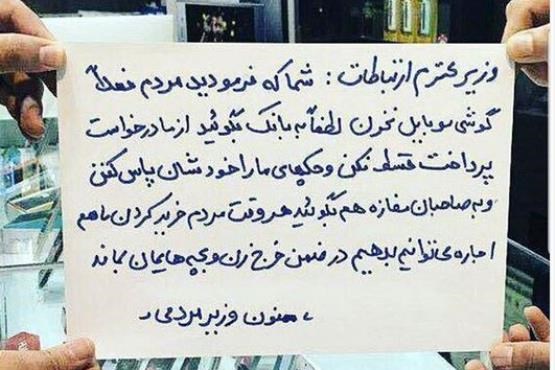 وزیر محترم ارتباطات : شما که فرمودید مردم فعلاً
گوشی موبایل نخرن لطفاً به بانک بگوئید از ما درخواست
پرداخت قسط نکن و چکهای ما را خودشان پاس کنن
و به صاحبان مغازه هم بگوئید هر وقت مردم خرید کردن ما هم
اجاره می توانیم بدهیم در ضمن خرج زن و بچه هایمان بماند
ممنون وزیر مردمی